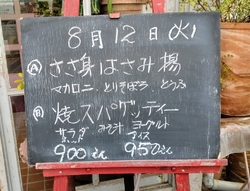 8月12日 火
Ⓐ ささ身はさみ揚
マカロニ とりそぼろ とうふ
Ⓑ 焼スパゲッティー
サラダ みそ汁 ヨーグルト
アイス
900 950